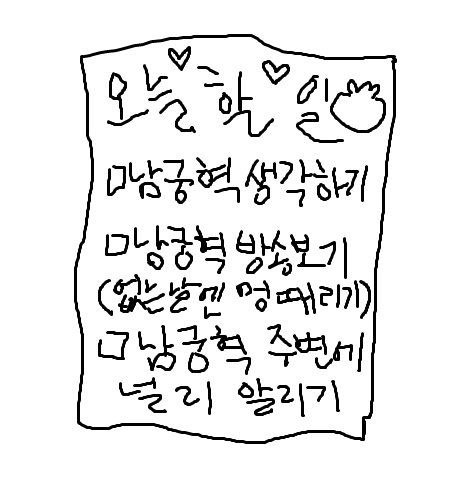 오늘 할 일
남궁혁 생각하기
남궁혁 방송보기
(없는날엔 멍때리기)
남궁혁 주변에
널리 알리기